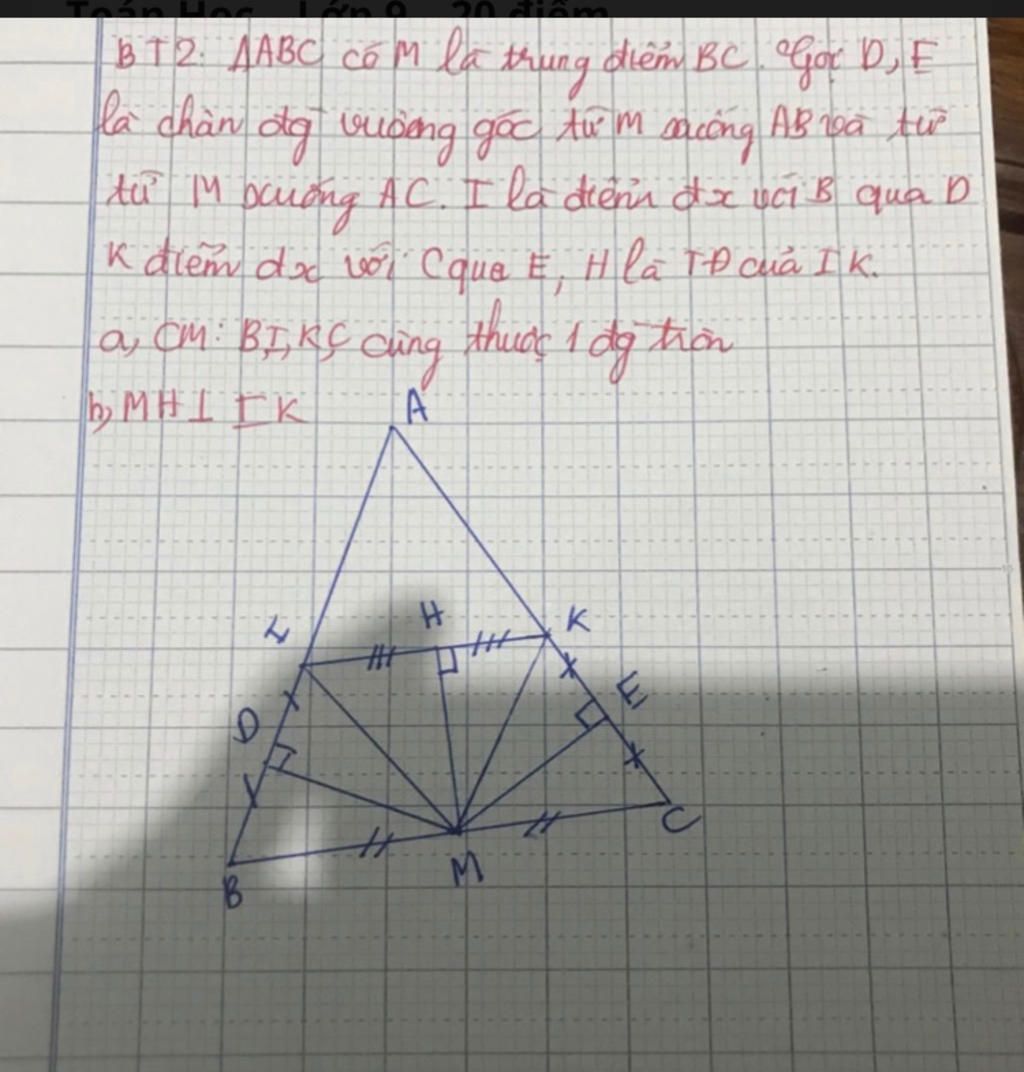 Toán Học - Lớp 9 - 20 điểm
BT2. ΔABC có M là trung điểm BC. Gọi D, E
là chân đg vuông góc từ M xuống AB và từ
từ M xuống AC. I là điểm đx với B qua D
K điểm đx với C qua E, H là TĐ của IK.
a, CM: B,I,K,C cùng thuộc 1 đg tròn
b, MH⊥ IK
A
H
K
I
E
D
C
M
B